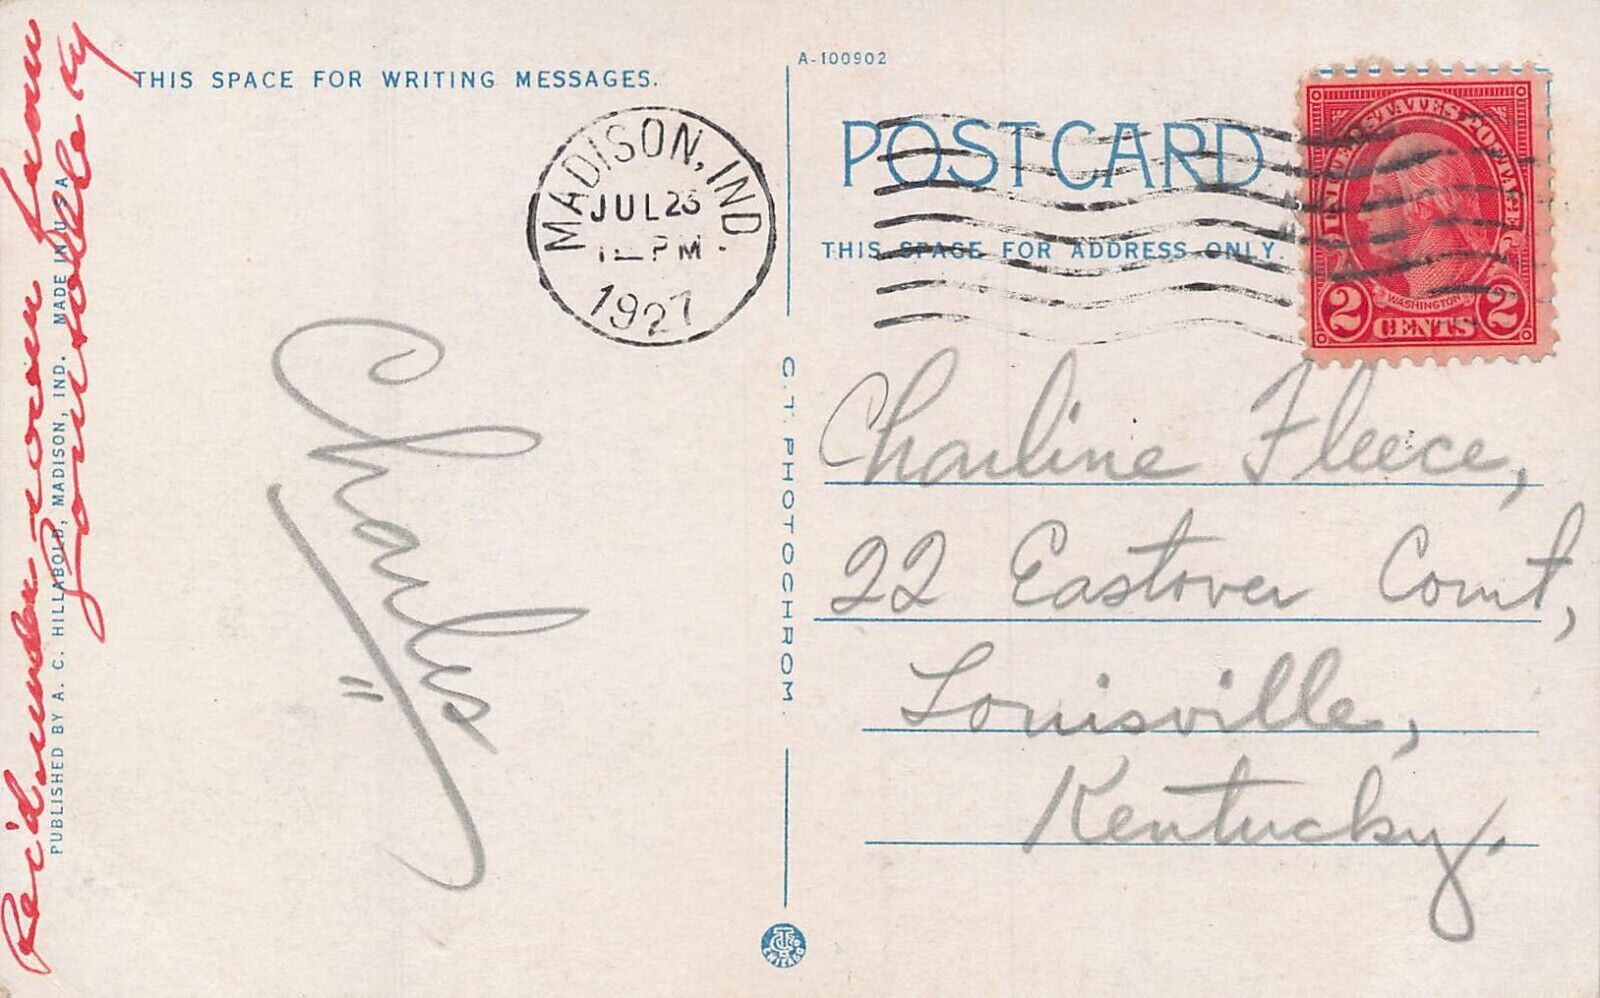 THIS SPACE FOR WRITING MESSAGES.
Charles
Rec'd
Louisville Ky
PUBLISHED BY A. C. HILLABOLD, MADISON, IND. MADE IN U S A
MADISON, IND.
JUL 23
PM
1927
C.T. PHOTOCHROM.
A-100902
POST CARD
THIS SPACE FOR ADDRESS ONLY.
UNITED STATES POSTAGE
WASHINGTON
2 CENTS 2
Charline Fleece,
22 Eastover Court,
Louisville,
Kentucky.
CHICAGO